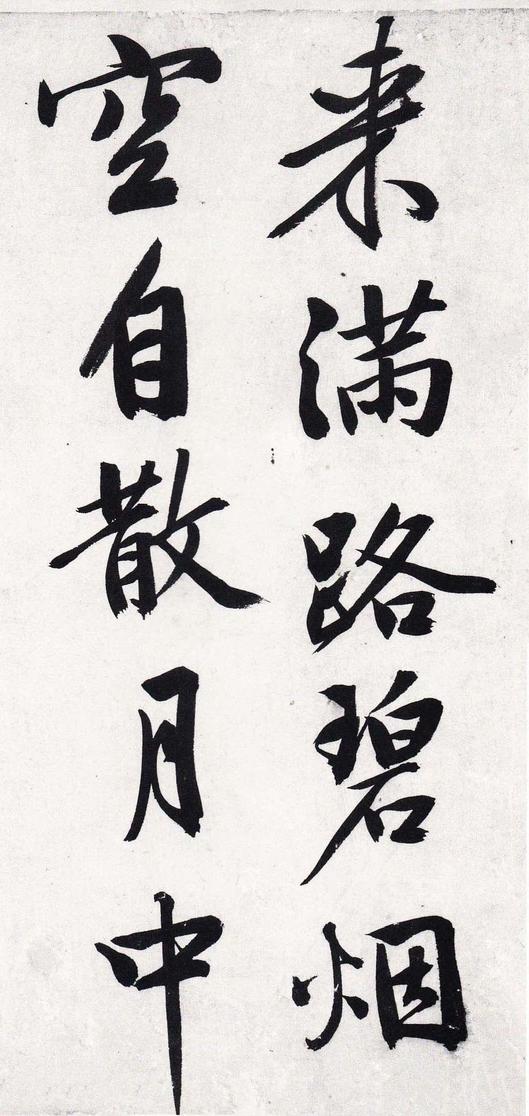 来满路碧烟
空自散月中